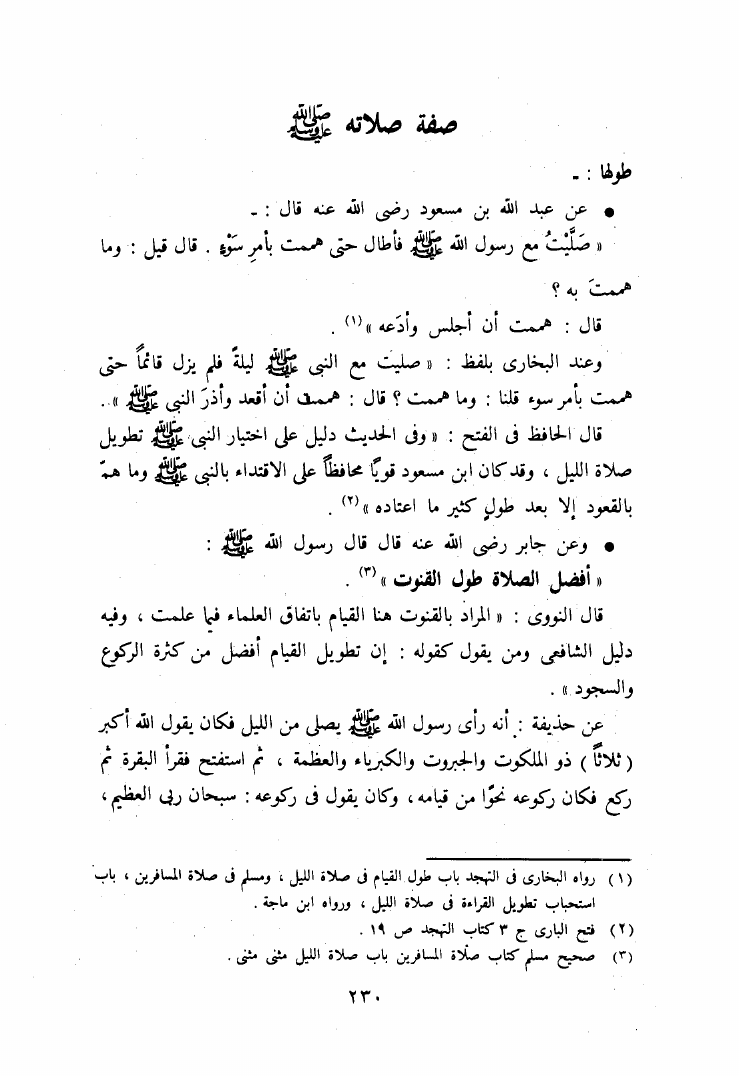 صفة صلاته ﷺ
طولها : ـ
● عن عبد الله بن مسعود رضى الله عنه قال : ـ
« صَلَّيْتُ مع رسول الله ﷺ فأطال حتى هممت بأمرِ سَوْءٍ . قال قيل : وما
هممتَ به ؟
قال : هممت أن أجلس وأدَعه »(١) .
وعند البخارى بلفظ : « صليت مع النبى ﷺ ليلةً فلم يزل قائماً حتى
هممت بأمر سوء قلنا : وما هممت ؟ قال : هممت أن أقعد وأذرَ النبى ﷺ » .
قال الحافظ فى الفتح : « وفى الحديث دليل على اختيار النبى ﷺ تطويل
صلاة الليل ، وقد كان ابن مسعود قويًا محافظاً على الاقتداء بالنبى ﷺ وما همّ
بالقعود إلا بعد طولٍ كثير ما اعتاده »(٢) .
● وعن جابر رضى الله عنه قال قال رسول الله ﷺ :
« أفضل الصلاة طول القنوت »(٣) .
قال النووى : « المراد بالقنوت هنا القيام باتفاق العلماء فيما علمت ، وفيه
دليل الشافعى ومن يقول كقوله : إن تطويل القيام أفضل من كثرة الركوع
والسجود » .
عن حذيفة : أنه رأى رسول الله ﷺ يصلى من الليل فكان يقول الله أكبر
( ثلاثاً ) ذو الملكوت والجبروت والكبرياء والعظمة ، ثم استفتح فقرأ البقرة ثم
ركع فكان ركوعه نحوًا من قيامه، وكان يقول فى ركوعه : سبحان ربى العظيم،
(١) رواه البخارى فى التهجد باب طول القيام فى صلاة الليل ، ومسلم فى صلاة المسافرين ، باب
استحباب تطويل القراءة فى صلاة الليل ، ورواه ابن ماجة .
(٢) فتح البارى ج ٣ كتاب التهجد ص ١٩ .
(٣) صحيح مسلم كتاب صلاة المسافرين باب صلاة الليل مثنى مثنى .
٢٣٠